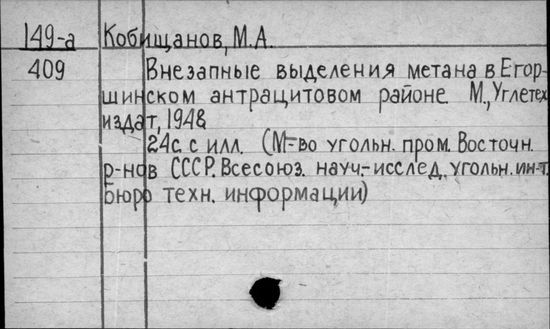 149-а Кобищанов, М.А.
409 Внезапные выделения метана в Егор-
шинском антрацитовом районе. М., Углетех-
издат, 1948
24с. с илл. (М-во угольн. пром. Восточн.
р-нов СССР. Всесоюз. науч.-исслед. угольн. ин-т.
Бюро техн. информации)